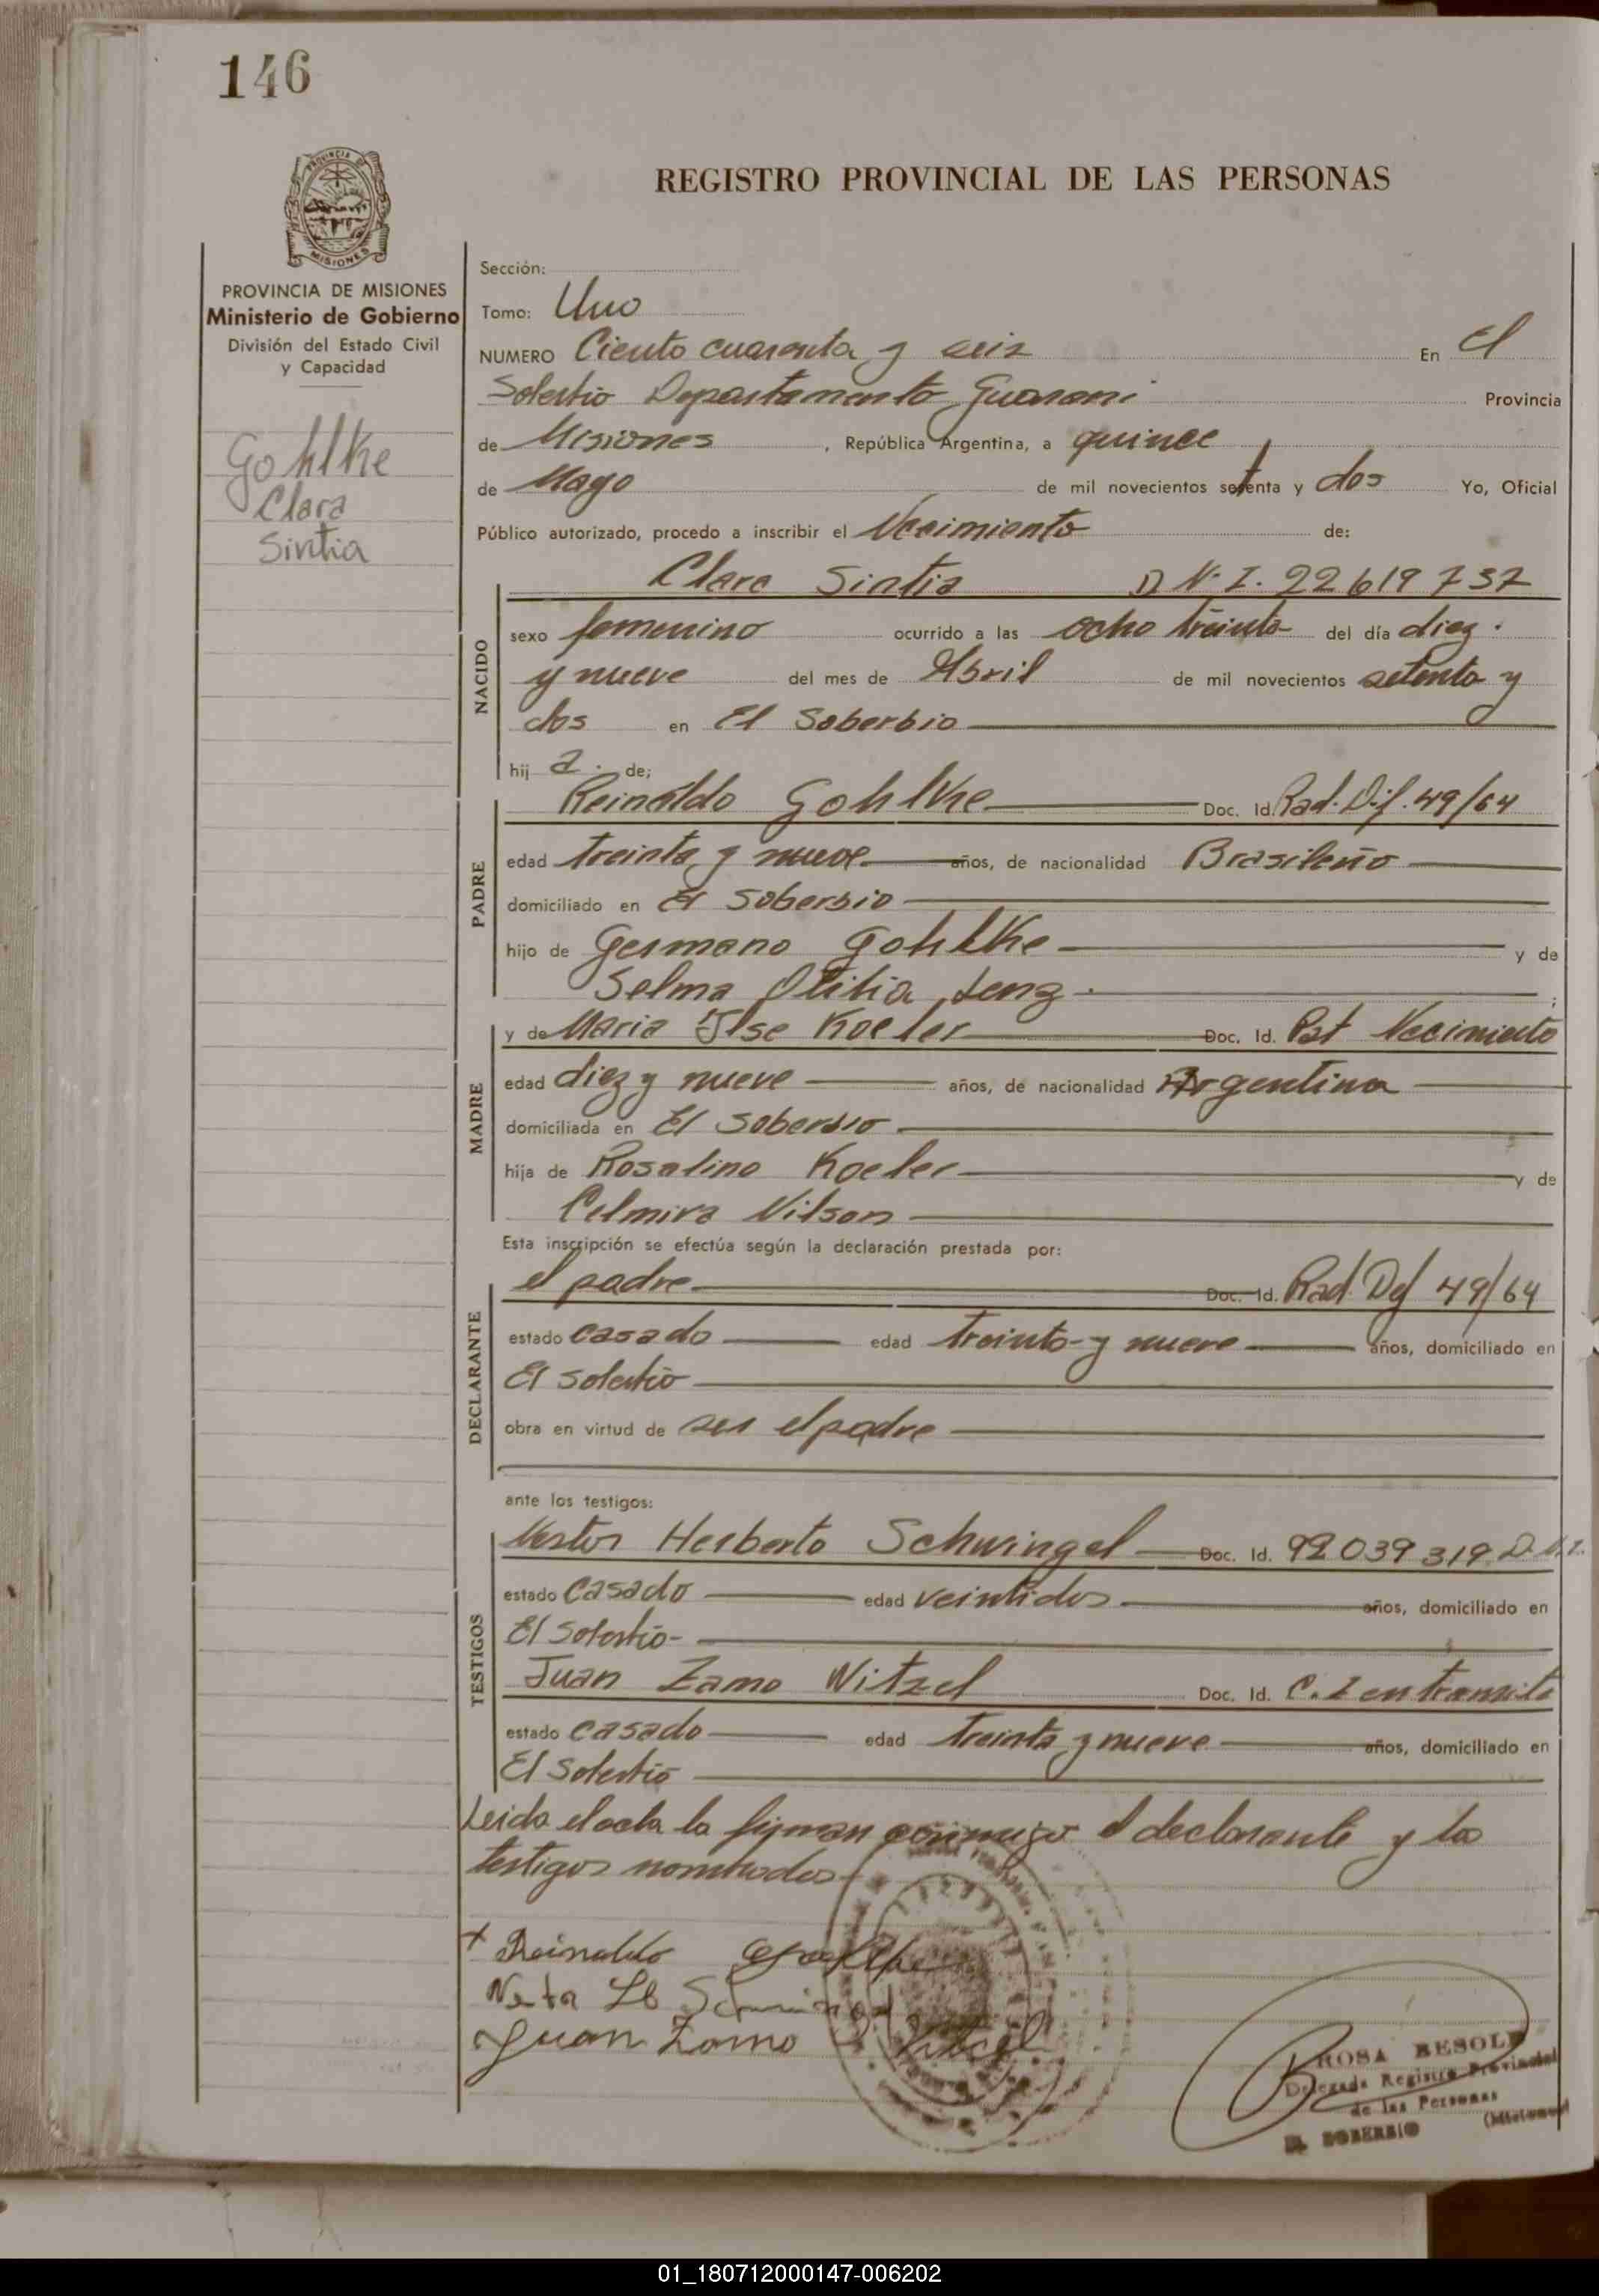 146
REGISTRO PROVINCIAL DE LAS PERSONAS
PROVINCIA DE
MISIONES
PROVINCIA DE MISIONES
Ministerio de Gobierno
División del Estado Civil
y Capacidad
Gohlke
Clara
Sintia
Sección:
Tomo: Uno
NUMERO Ciento cuarenta y seis En El
Soberbio Departamento Guarani Provincia
de Misiones, República Argentina, a quince
de Mayo de mil novecientos setenta y dos Yo, Oficial
Público autorizado, procedo a inscribir el Nacimiento de:
NACIDO
Clara Sintia D N. I. 22619737
sexo femenino ocurrido a las ocho treinta del día diez
y nueve del mes de Abril de mil novecientos setenta y
dos en El Soberbio
hij a. de;
PADRE
Reinaldo Gohlke Doc. Id. Rad. Dif. 49/64
edad treinta y nueve años, de nacionalidad Brasileño
domiciliado en El Soberbio
hijo de Germano Gohlke y de
Selma Otilia Lenz ;
MADRE
y de Maria Ilse Koeler Doc. Id. Pat Nacimiento
edad diez y nueve años, de nacionalidad Argentina
domiciliada en El Soberbio
hija de Rosalino Koeler y de
Celmira Nilson
Esta inscripción se efectúa según la declaración prestada por:
DECLARANTE
el padre Doc. Id. Rad Def 49/64
estado casado edad treinta y nueve años, domiciliado en
El Soberbio
obra en virtud de ser el padre
ante los testigos:
TESTIGOS
Nestor Herberto Schwingel Doc. Id. 92039319 D.N.I.
estado casado edad veintidos años, domiciliado en
El Soberbio
Juan Zamo Witzel Doc. Id. C. I en tramite
estado casado edad treinta y nueve años, domiciliado en
El Soberbio
Leida el acta la firman conmigo el declarante y los
testigos nombrados
x Reinaldo Gohlke
Juan Zamo Witzel
ROSA BESOLD
Delegada Registro Provincial
de las Personas
EL SOBERBIO (Misiones)
01_180712000147-006202